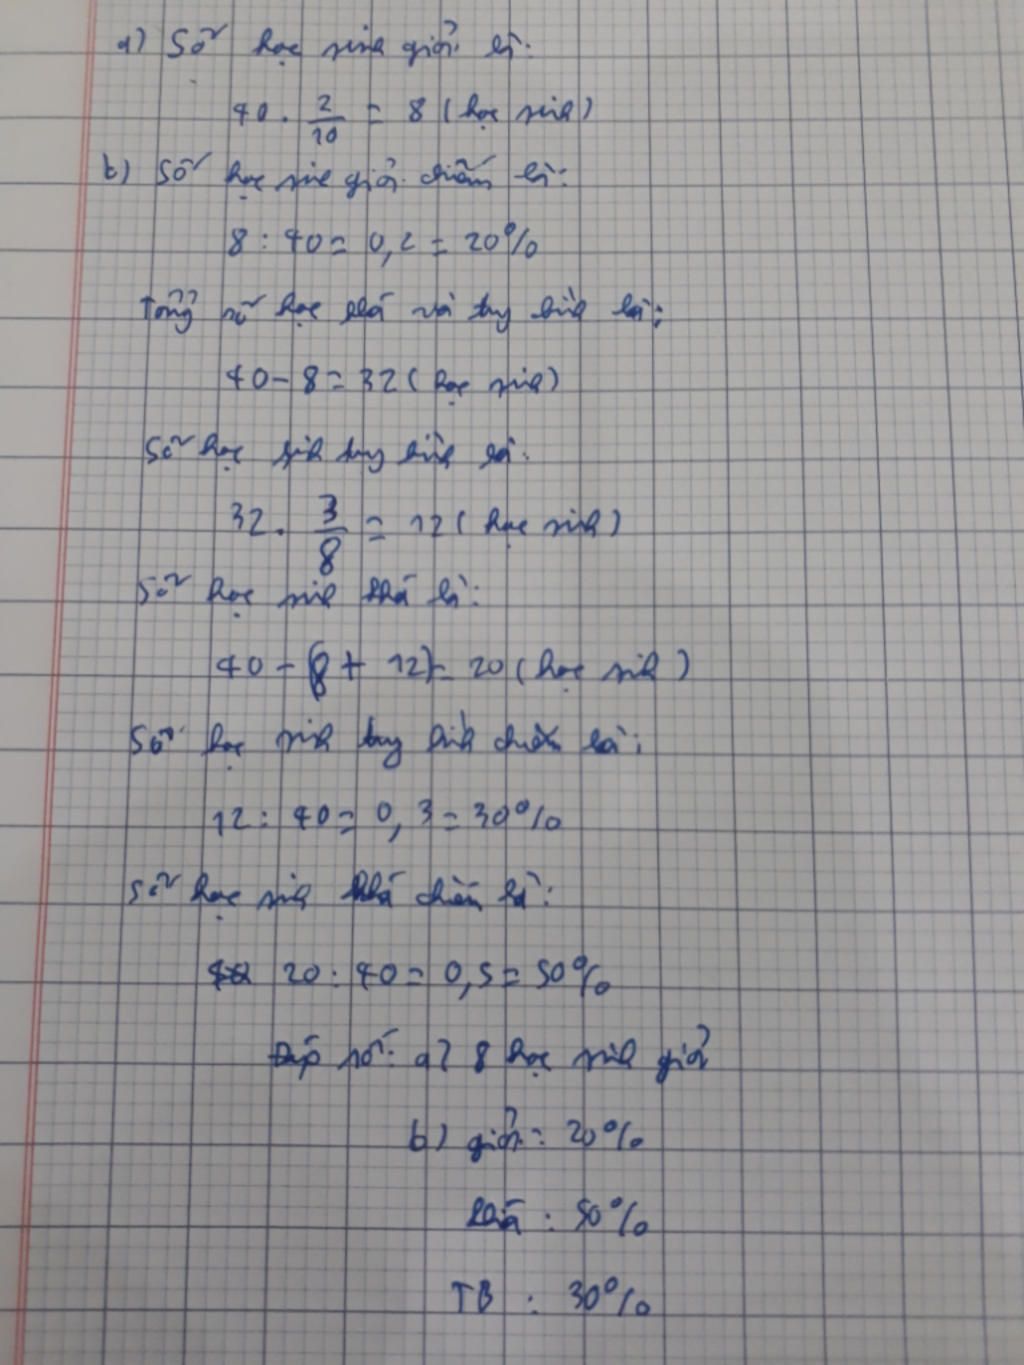 a) Số học sinh giỏi là:
40 . 2/10 = 8 (học sinh)
b) Số học sinh giỏi chiếm là:
8 : 40 = 0,2 = 20%
Tổng số học khá và trung bình là:
40 - 8 = 32 (học sinh)
Số học sinh trung bình là:
32 . 3/8 = 12 (học sinh)
Số học sinh khá là:
40 - (8 + 12) = 20 (học sinh)
Số học sinh trung bình chiếm là:
12 : 40 = 0,3 = 30%
Số học sinh khá chiếm là:
20 : 40 = 0,5 = 50%
Đáp số: a) 8 học sinh giỏi
b) giỏi: 20%
khá : 50%
TB : 30%